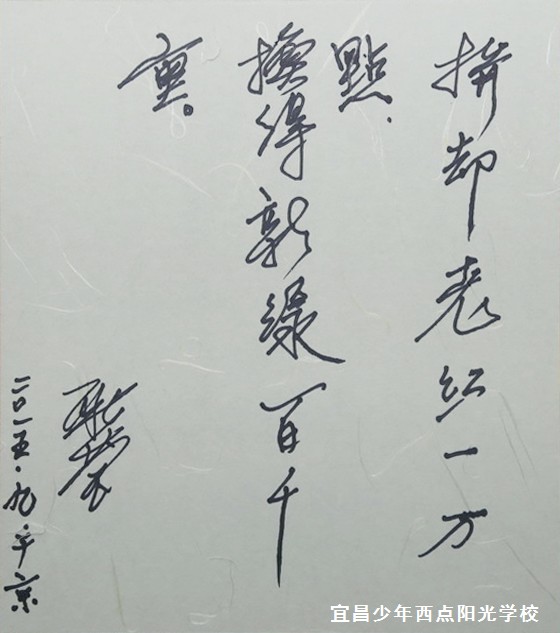 拚却老红一万
點、
換得新绿百千
重。
二〇一五·九·于京
宜昌少年西点阳光学校